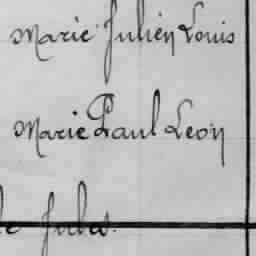 Marie Julien Louis
Marie Paul Leon
Jules